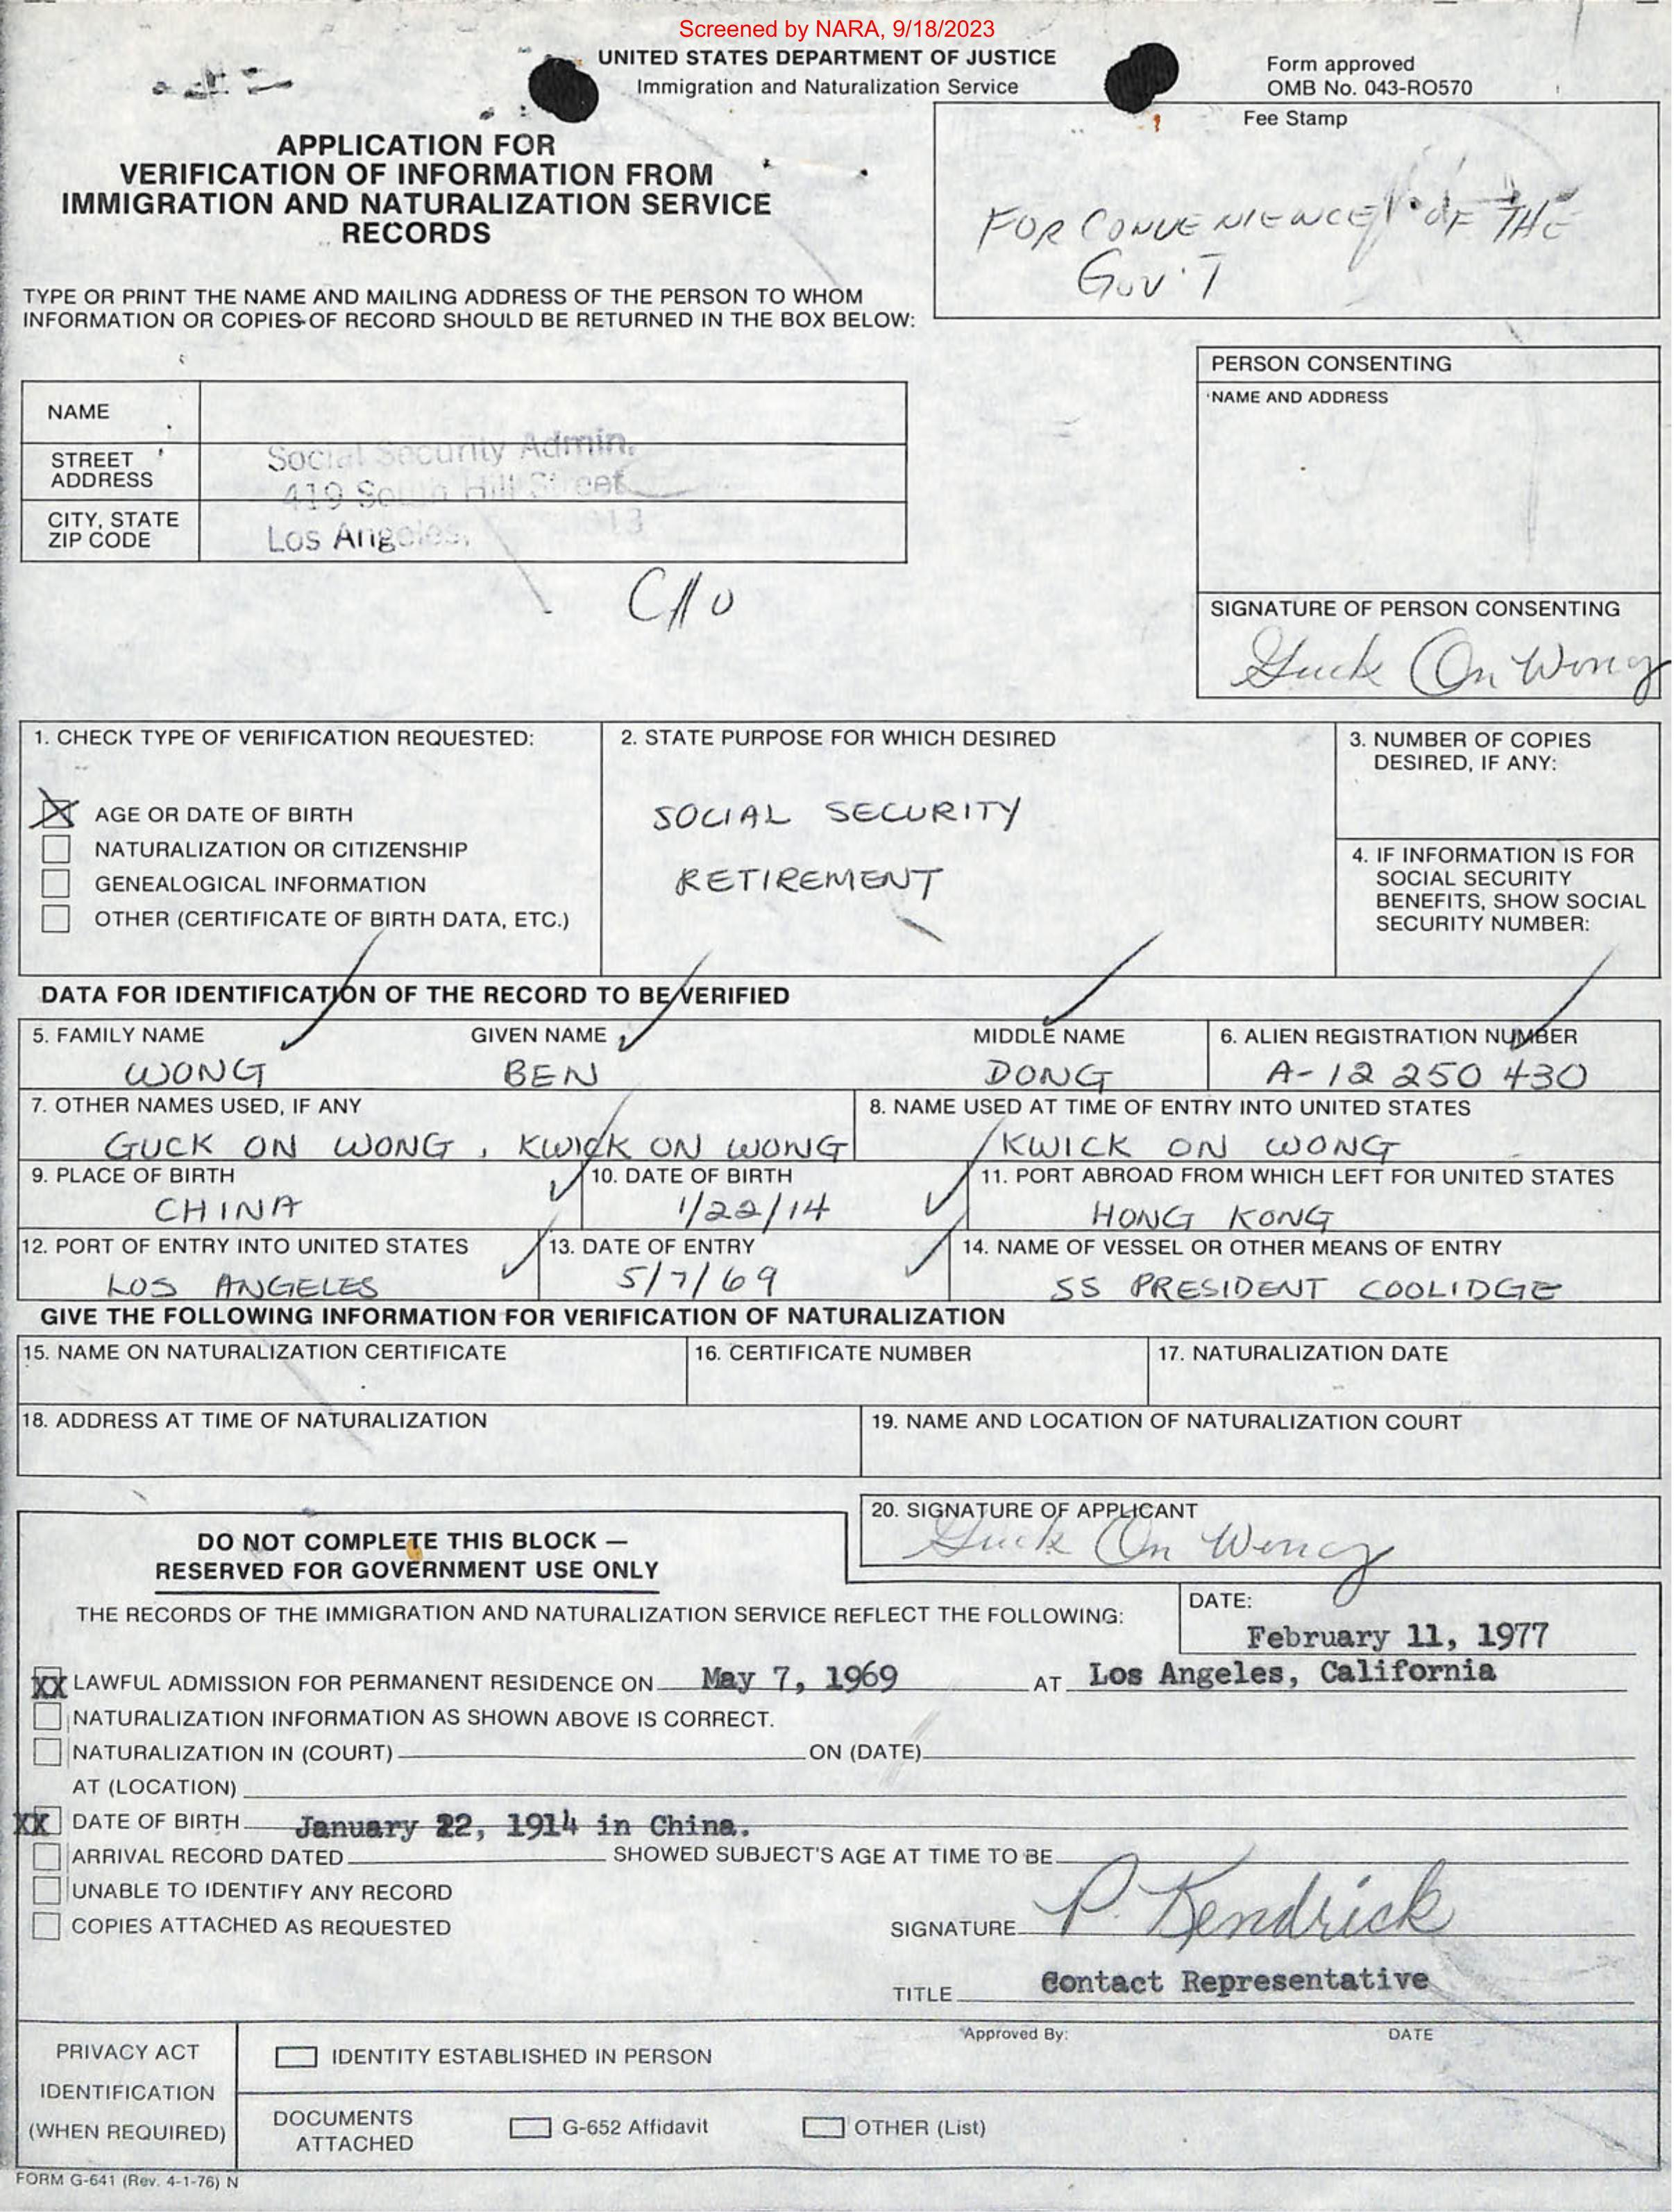 Screened by NARA, 9/18/2023
UNITED STATES DEPARTMENT OF JUSTICE
Immigration and Naturalization Service
Form approved
OMB No. 043-RO570
Fee Stamp
FOR CONVENIENCE OF THE
GOV'T
APPLICATION FOR
VERIFICATION OF INFORMATION FROM
IMMIGRATION AND NATURALIZATION SERVICE
RECORDS
TYPE OR PRINT THE NAME AND MAILING ADDRESS OF THE PERSON TO WHOM
INFORMATION OR COPIES OF RECORD SHOULD BE RETURNED IN THE BOX BELOW:
NAME
STREET
ADDRESS
Social Security Admin.
419 South Hill Street
CITY, STATE
ZIP CODE
Los Angeles,
PERSON CONSENTING
NAME AND ADDRESS
SIGNATURE OF PERSON CONSENTING
Guck On Wong
1. CHECK TYPE OF VERIFICATION REQUESTED:
AGE OR DATE OF BIRTH
NATURALIZATION OR CITIZENSHIP
GENEALOGICAL INFORMATION
OTHER (CERTIFICATE OF BIRTH DATA, ETC.)
2. STATE PURPOSE FOR WHICH DESIRED
SOCIAL SECURITY
RETIREMENT
3. NUMBER OF COPIES
DESIRED, IF ANY:
4. IF INFORMATION IS FOR
SOCIAL SECURITY
BENEFITS, SHOW SOCIAL
SECURITY NUMBER:
DATA FOR IDENTIFICATION OF THE RECORD TO BE VERIFIED
5. FAMILY NAME GIVEN NAME MIDDLE NAME
WONG BEN DONG
6. ALIEN REGISTRATION NUMBER
A-12 250 430
7. OTHER NAMES USED, IF ANY
GUCK ON WONG, KWICK ON WONG
8. NAME USED AT TIME OF ENTRY INTO UNITED STATES
KWICK ON WONG
9. PLACE OF BIRTH
CHINA
10. DATE OF BIRTH
1/22/14
11. PORT ABROAD FROM WHICH LEFT FOR UNITED STATES
HONG KONG
12. PORT OF ENTRY INTO UNITED STATES
LOS ANGELES
13. DATE OF ENTRY
5/7/69
14. NAME OF VESSEL OR OTHER MEANS OF ENTRY
SS PRESIDENT COOLIDGE
GIVE THE FOLLOWING INFORMATION FOR VERIFICATION OF NATURALIZATION
15. NAME ON NATURALIZATION CERTIFICATE
16. CERTIFICATE NUMBER
17. NATURALIZATION DATE
18. ADDRESS AT TIME OF NATURALIZATION
19. NAME AND LOCATION OF NATURALIZATION COURT
20. SIGNATURE OF APPLICANT
Guck On Wong
DO NOT COMPLETE THIS BLOCK —
RESERVED FOR GOVERNMENT USE ONLY
THE RECORDS OF THE IMMIGRATION AND NATURALIZATION SERVICE REFLECT THE FOLLOWING:
DATE:
February 11, 1977
XX LAWFUL ADMISSION FOR PERMANENT RESIDENCE ON May 7, 1969 AT Los Angeles, California
NATURALIZATION INFORMATION AS SHOWN ABOVE IS CORRECT.
NATURALIZATION IN (COURT) ON (DATE)
AT (LOCATION)
XX DATE OF BIRTH January 22, 1914 in China.
ARRIVAL RECORD DATED SHOWED SUBJECT'S AGE AT TIME TO BE
UNABLE TO IDENTIFY ANY RECORD
COPIES ATTACHED AS REQUESTED
SIGNATURE P. Kendrick
TITLE Contact Representative
PRIVACY ACT
IDENTIFICATION
(WHEN REQUIRED)
Approved By: DATE
IDENTITY ESTABLISHED IN PERSON
DOCUMENTS
ATTACHED
G-652 Affidavit
OTHER (List)
FORM G-641 (Rev. 4-1-76) N